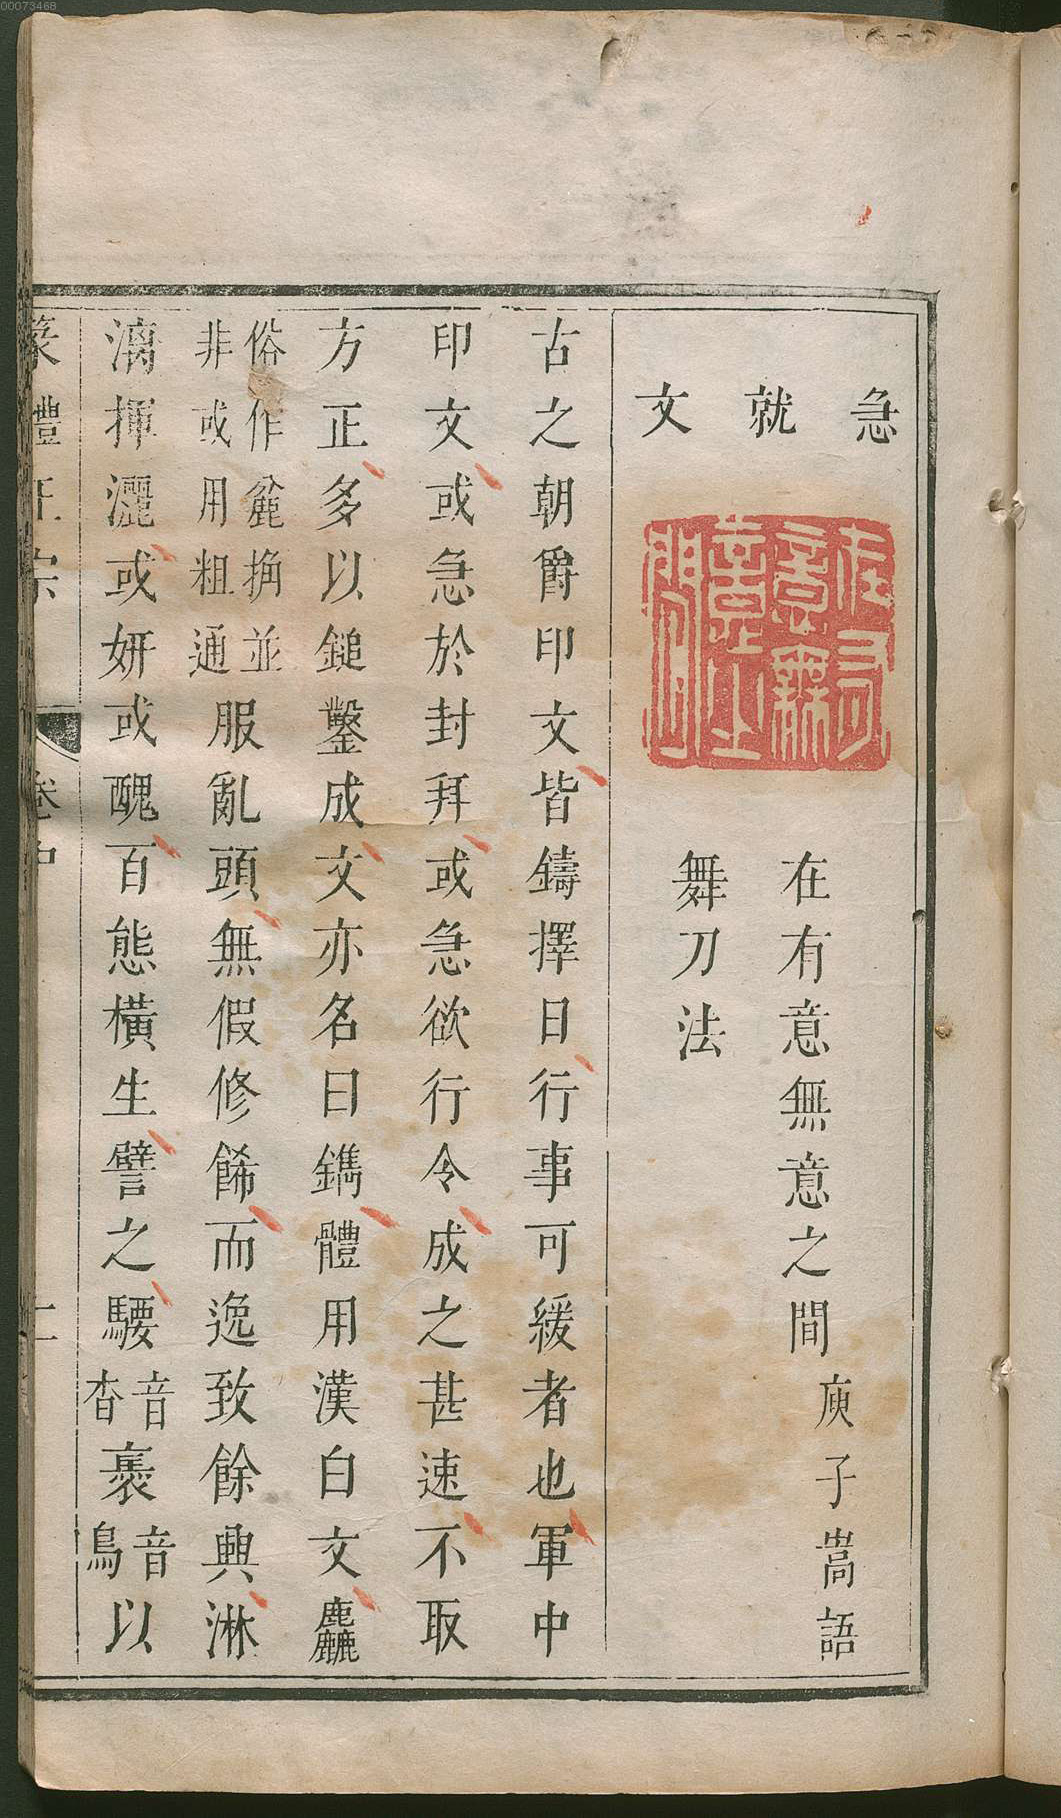 00073468
急
就
文
在有意無意之間
庾子嵩語
舞刀法
古之朝爵印文皆鑄擇日行事可緩者也軍中
印文或急於封拜或急欲行令成之甚速不取
方正多以鎚鑿成文亦名曰鐫體用漢白文麤
俗作麄觕並
非或用粗通
服亂頭無假修餙而逸致餘興淋
漓揮灑或妍或醜百態橫生譬之騕
音
杳
褭
音
鳥
以
篆體正宗
卷中